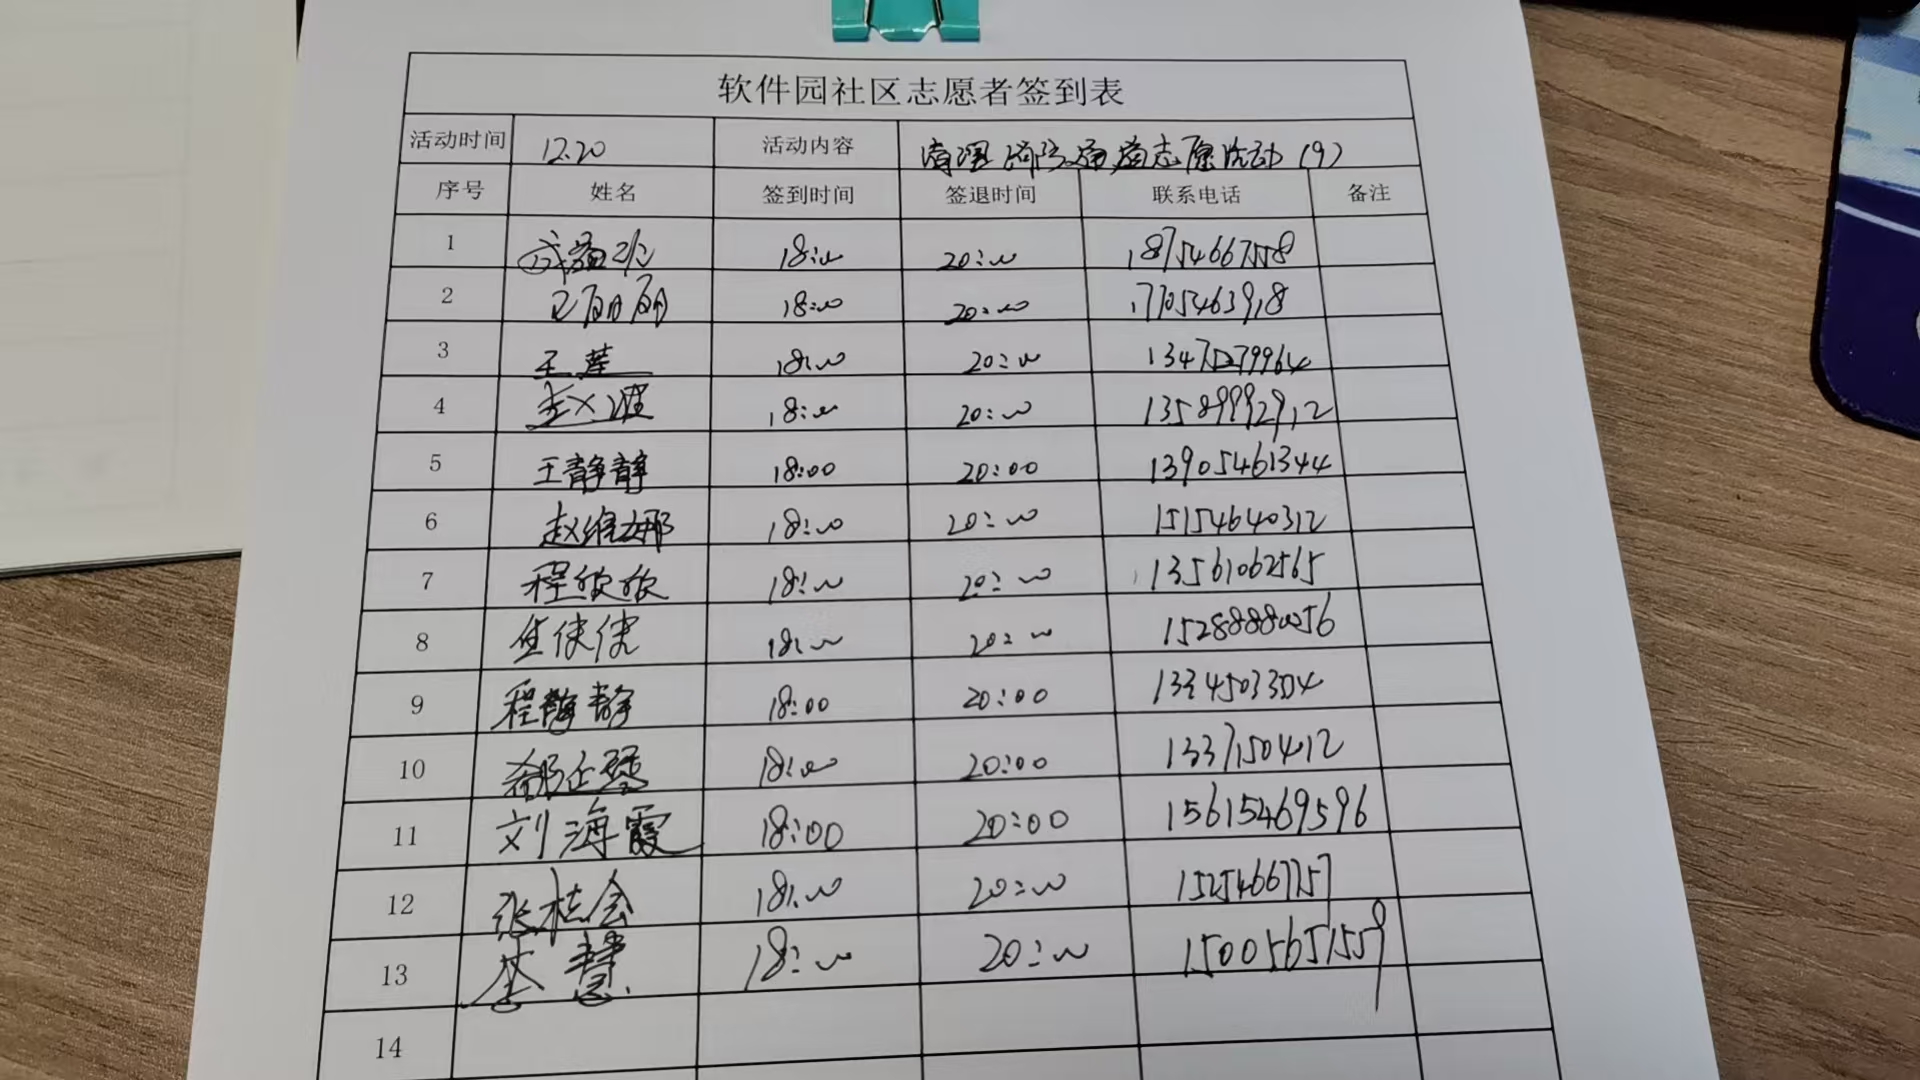 软件园社区志愿者签到表
活动时间 12.20 活动内容 清理消防通道志愿活动（9）
序号 姓名 签到时间 签退时间 联系电话 备注
1 18:00 20:00 18754667558
2 丽丽 18:00 20:00 17705463918
3 王莲 18:00 20:00
4 赵 18:00 20:00 13589992912
5 王静静 18:00 20:00 13905461344
6 赵维娜 18:00 20:00 15154640312
7 程欣欣 18:00 20:00 13561062565
8 18:00 20:00 15288880056
9 程静静 18:00 20:00
10 18:00 20:00
11 刘海霞 18:00 20:00 15615469596
12 张桂会 18:00 20:00 15254667757
13 李慧 18:00 20:00 15005651559
14